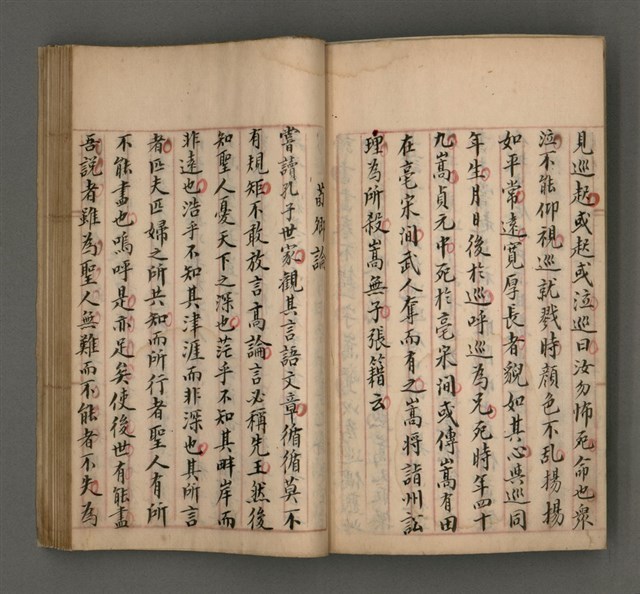 見巡起或起或泣巡曰汝勿怖死命也眾
泣不能仰視巡就戮時顏色不乱揚揚
如平常遠寬厚長者貌如其心與巡同
年生月日後於巡呼巡為兄死時年四十
九嵩貞元中死於亳宋間或傳嵩有田
在亳宋間武人奪而有之嵩將詣州訟
理為所殺嵩無子張籍云
荀卿論
嘗讀孔子世家觀其言語文章循循莫不
有規矩不敢放言高論言必稱先王然後
知聖人憂天下之深也茫乎不知其畔岸而
非遠也浩乎不知其津涯而非深也其所言
者匹夫匹婦之所共知而所行者聖人有所
不能盡也嗚呼是亦足矣使後世有能盡
吾說者雖為聖人無難而不能者不失為